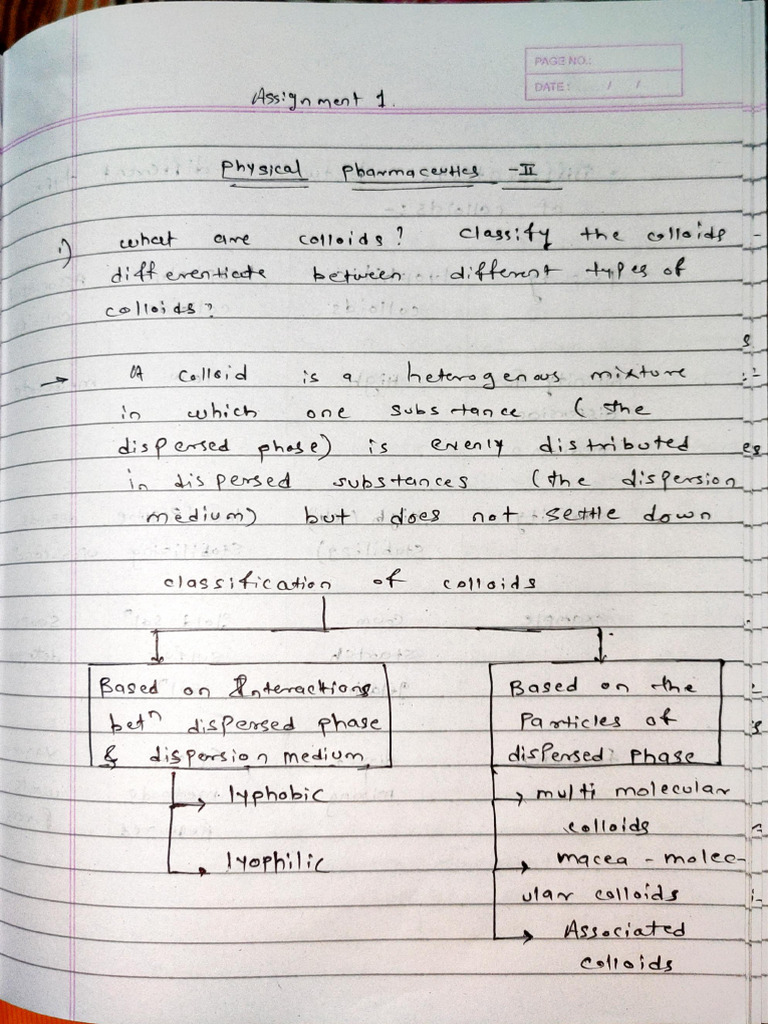 PAGE NO.:
DATE: / /
Assignment 1.
Physical Pharmaceutics -II
1) what are colloids? classify the colloids
differenticate between different types of
colloids?
→ A colloid is a heterogenous mixture
in which one substance (the
dispersed phase) is evenly distributed
in dispersed substances (the dispersion
medium) but does not settle down
classification of colloids
Based on Interactions
betⁿ dispersed phase
& dispersion medium
→ lyphobic
→ lyophilic
Based on the
Particles of
dispersed phase
→ multi molecular
colloids
→ macea - molec-
ular colloids
→ Associated
colloids